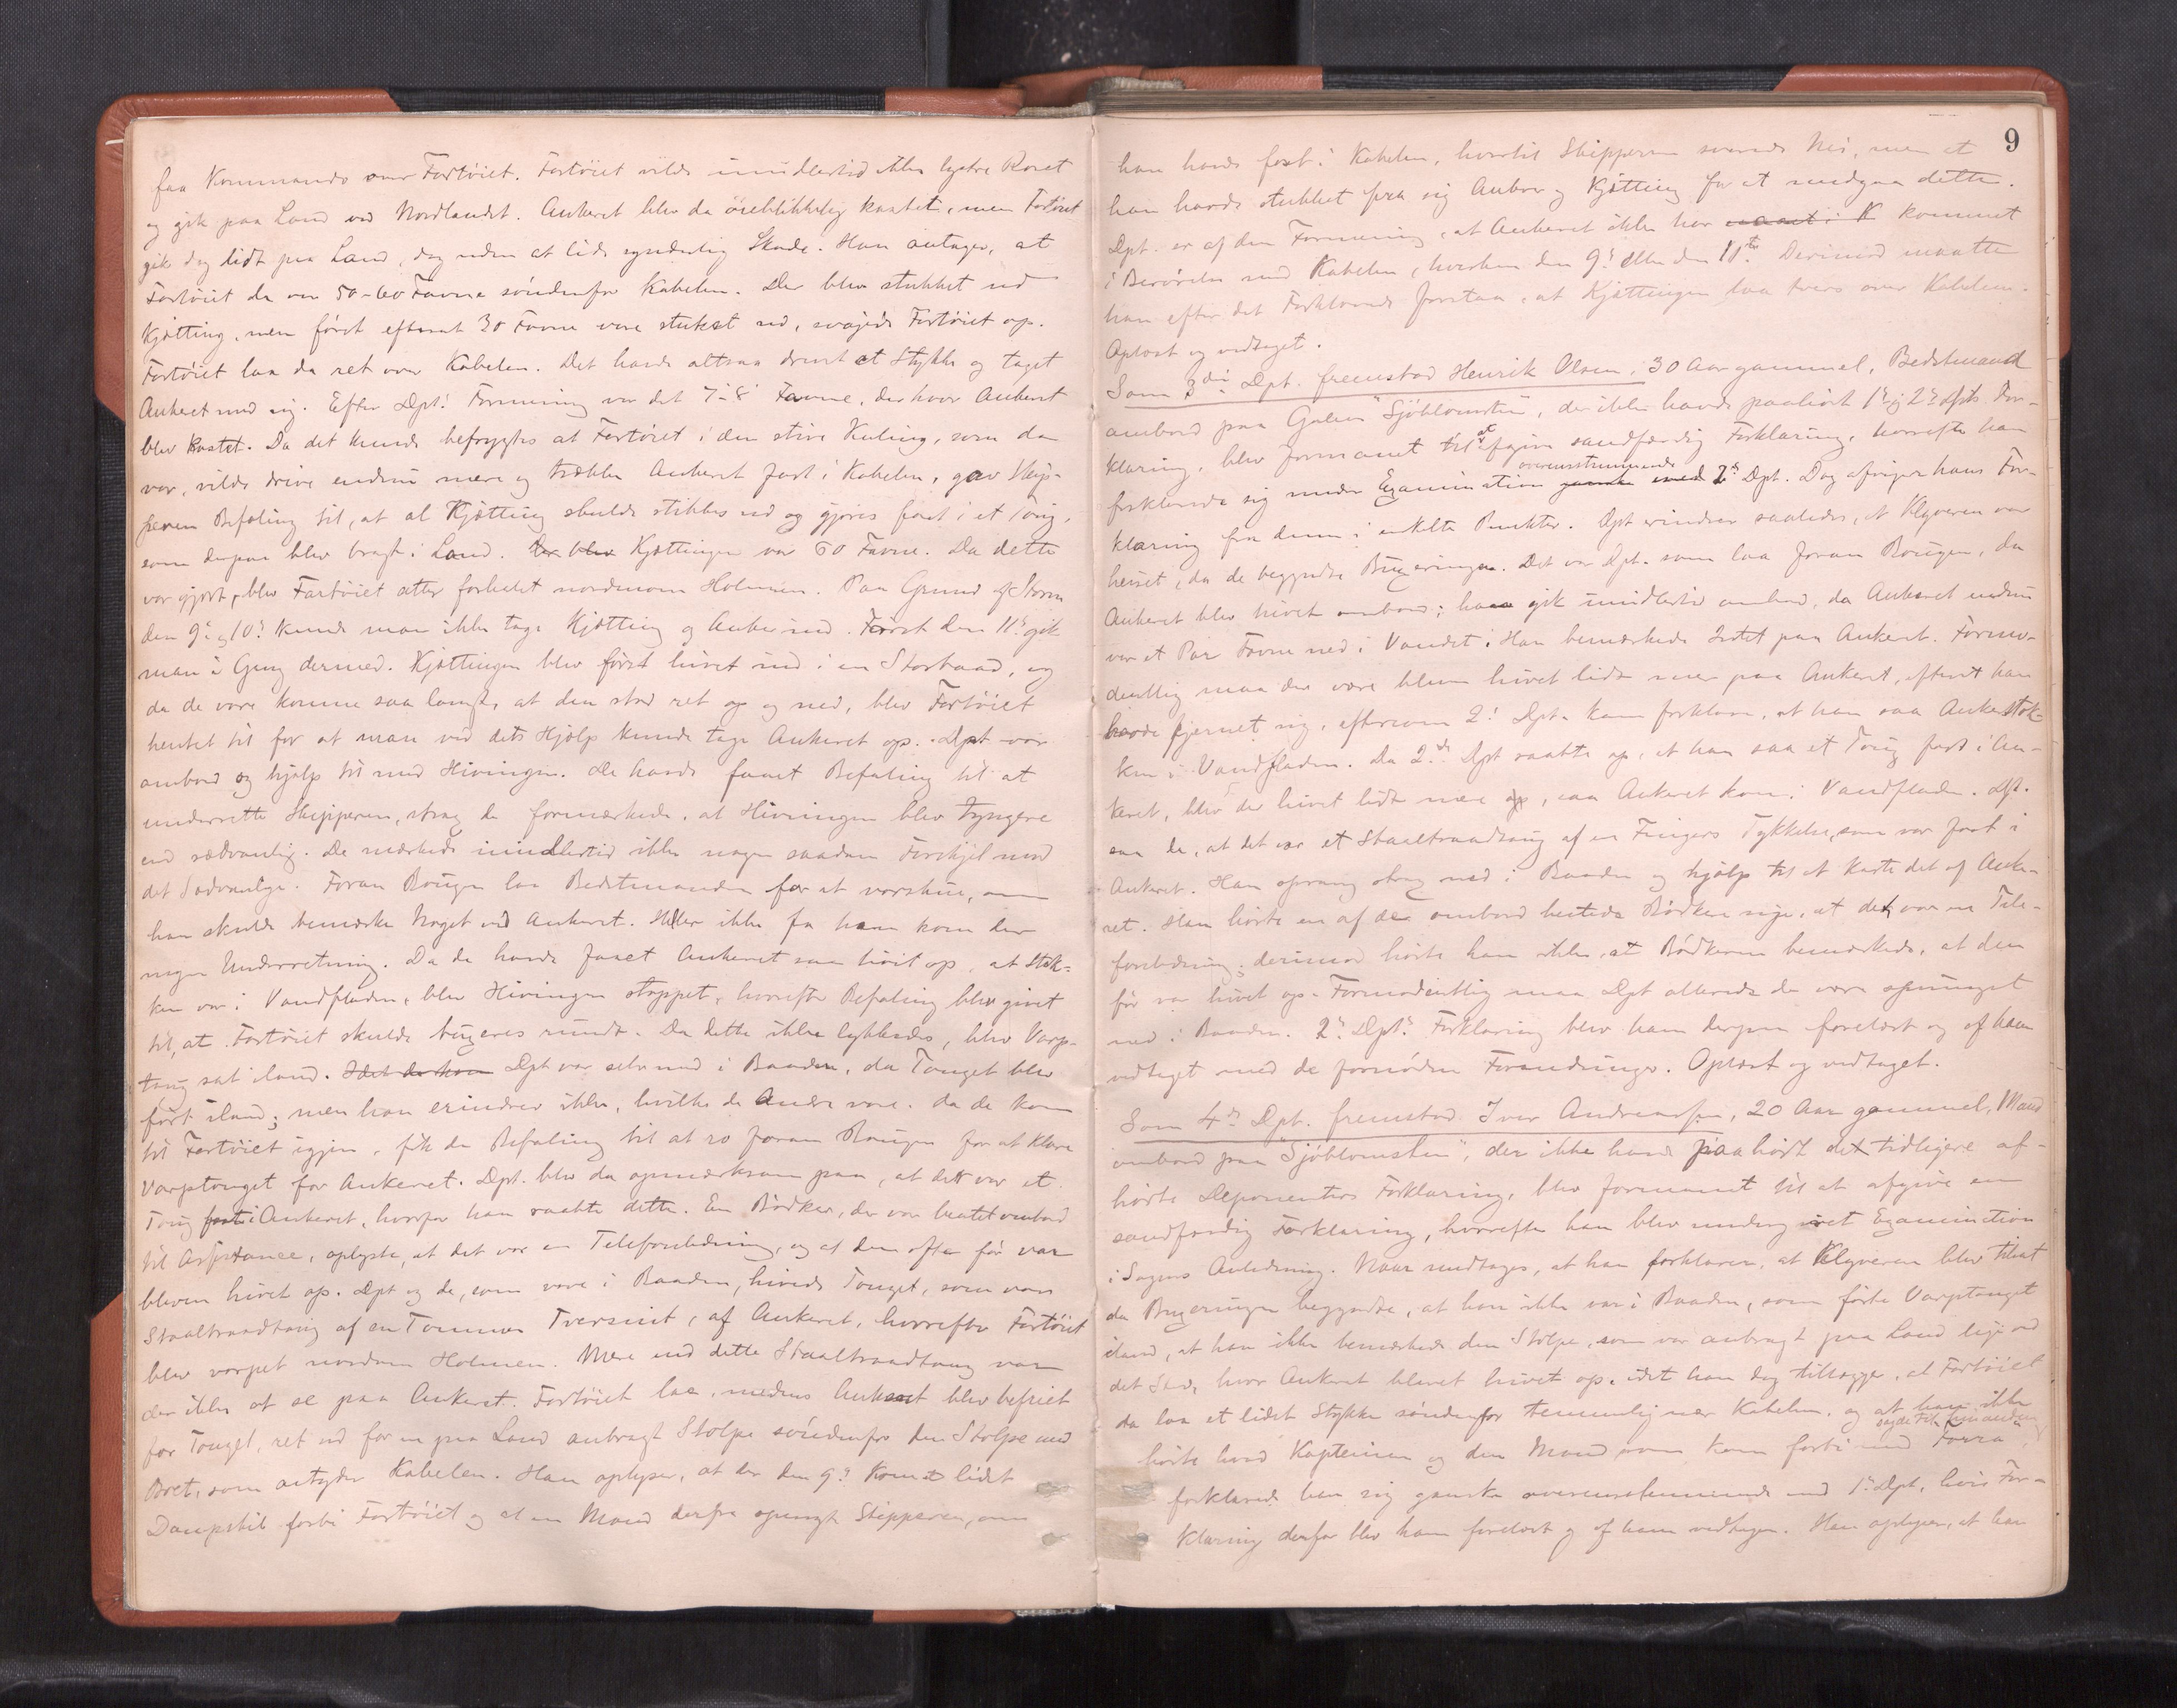 faa Kommando over Fartöiet. Fartöiet vilde imidlertid ikke lystre Roret
og gik paa Land ved Nordlandet. Ankeret blev da öieblikkelig kastet, men Fartöiet
gik dog lidt paa Land, dog uden at lide synderlig Skade. Han antager, at
Fartöiet da var 50-60 Favne söndenfor Kabelen. Der blev stukket ud
Kjætting, men först efterat 30 Favne vare stukket ud, svajede Fartöiet op.
Fartöiet laa da ret over Kabelen. Det havde altsaa drevet et Stykke og taget
Ankeret med sig. Efter Dpts Formening var det 7 à 8 Favne, der hvor Ankeret
blev kastet. Da det kunde befrygtes at Fartöiet i den stive Kuling, som da
var, vilde drive endnu mere og trække Ankeret fast i Kabelen, gav Skip-
peren Befaling til, at al Kjætting skulde stikkes ud og gjöres fast i et Toug,
som derpaa blev bragt i Land. Der blev Kjættingen var 60 Favne. Da dette
var gjort, blev Fartöiet atter forhalet nordenom Holmen. Paa Grund af Storm
den 9de og 10de kunde man ikke tage Kjætting og Anker ind. Först den 11te gik
man i Gang dermed. Kjættingen blev först hivet ind i en Storbaad, og
da de vare komne saa langt, at den stod ret op og ned, blev Fartöiet
hentet til for at man ved dets Hjælp kunde tage Ankeret op. Dpt var
ombord og hjalp til med Hivingen. De havde faaet Befaling til at
underrette Skipperen, strax de formærkede, at Hivingen blev tyngere
end sædvanlig. De mærkede imidlertid ikke nogen saadan Forskjel mod
det Sædvanlige. Foran Bougen laa Bedstmanden for at varskue, om
han skulde bemærke Noget ved Ankeret. Heller ikke fra ham kom der
nogen Underretning. Da de havde faaet Ankeret saa höit op, at Stok-
ken var i Vandfladen, blev Hivingen stoppet, hvorefter Befaling blev givet
til, at Fartöiet skulde buxeres rundt. Da dette ikke lykkedes, blev Varp-
toug sat iland. Idet de kom Dpt var selv med i Baaden, da Touget blev
fört iland; men han erindrer ikke, hvilke de Andre vare. Da de kom
til Fartöiet igjen, fik de Befaling til at ro foran Bougen for at klare
Varptouget for Ankeret. Dpt. blev da opmærksom paa, at der var et
Toug fast i Ankeret, hvorfor han raabte dette. En Bödker, der var leiet ombord
til Assistance, oplyste, at det var en Telefonledning, og at den ofte för var
bleven hivet op. Dpt og de, som vare i Baaden, hivede Touget, som var
Staaltraadtoug af en Tommes Tversnit, af Ankeret, hvorefter Fartöiet
blev varpet nordom Holmen. Mere end dette Staaltraadtoug var
der ikke at se paa Ankeret. Fartöiet laa, medens Ankeret blev befriet
for Touget, ret ud for en paa Land anbragt Stolpe söndenfor den Stolpe med
Bret, som antyder Kabelen. Han oplyser, at der den 9de kom et lidet
Dampskib forbi Fartöiet og at en Mand derfra spurgte Skipperen, om
9
han havde fast i Kabelen, hvortil Skipperen svarede Nei, men at
han havde stukket fra sig Anker og Kjætting for at undgaa dette.
Dpt. er af den Formening, at Ankeret ikke har været i K kommet
i Berörelse med Kabelen, hverken den 9de eller den 11te. Derimod maatte
han efter det Forklarede forstaa, at Kjættingen laa tvers over Kabelen.
Oplæst og vedtaget.
Som 3die Dpt. fremstod Henrik Olsen, 30 Aar gammel, Bedstmand
ombord paa Galeas "Sjöblomsten", der ikke havde paahört 1ste og 2den Dpts For-
klaring, blev formanet til at afgive sandfærdig Forklaring, hvorefter han
forklarede sig under Examination ganske med overensstemmende 2den Dpt. Dog afviger hans For-
klaring fra denne i enkelte Punkter. Dpt erindrer saaledes, at Klyveren var
heiset, da de begyndte Buxeringen. Det var Dpt. som laa foran Bougen, da
Ankeret blev hivet ombord; han gik imidlertid ombord, da Ankeret endnu
var et Par Favne ned i Vandet. Han bemærkede Intet paa Ankeret. Formo-
dentlig maa der være bleven hivet lidt mer paa Ankeret, efterat han
havde fjernet sig, eftersom 2den Dpt. kan forklare, at han saa Ankerstok-
ken i Vandfladen. Da 2den Dpt raabte op, at han saa et Toug fast i An-
keret, blev der hivet lidt mere op, saa Ankeret kom i Vandfladen. Dpt.
saa da, at det var et Staaltraadtoug af en Fingers Tykkelse, som var fast i
Ankeret. Han sprang strax ned i Baaden og hjalp til at kaste det af Anke-
ret. Han hörte en af de ombord leiede Bödkere sige, at det var en Tele-
fonledning; derimod hörte han ikke, at Bödkeren bemærkede, at den
för var hivet op. Formodentlig maa Dpt allerede da være sprunget
ned i Baaden. 2den Dpts Forklaring blev ham derpaa forelæst og af ham
vedtaget med de fornödne Forandringer. Oplæst og vedtaget.
Som 4de Dpt. fremstod Iver Andreassen, 20 Aar gammel, Mand
ombord paa "Sjöblomsten", der ikke havde paahört de tidligere af-
hörte Deponenters Forklaring, blev formanet til at afgive en
sandfærdig Forklaring, hvorefter han blev undergivet Examination
i Sagens Anledning. Naar undtages, at han forklarer, at Klyveren blev tilsat
da Buxeringen begyndte, at han ikke var i Baaden, som förte Varptouget
iland, at han ikke bemærkede den Stolpe, som var anbragt paa Land lige ved
det Sted, hvor Ankeret blevet hivet op, idet han dog tillægger, at Fartöiet
da laa et lidet Stykke söndenfor temmelig nær Kabelen, og at han ikke
hörte hvad Kapteinen og den Mand som kom forbi med Farra sagde til hinanden,
forklarede han sig ganske overensstemmende med 1ste Dpt, hvis For-
klaring derfor blev ham forelæst og af ham vedtagen. Han oplyser, at han